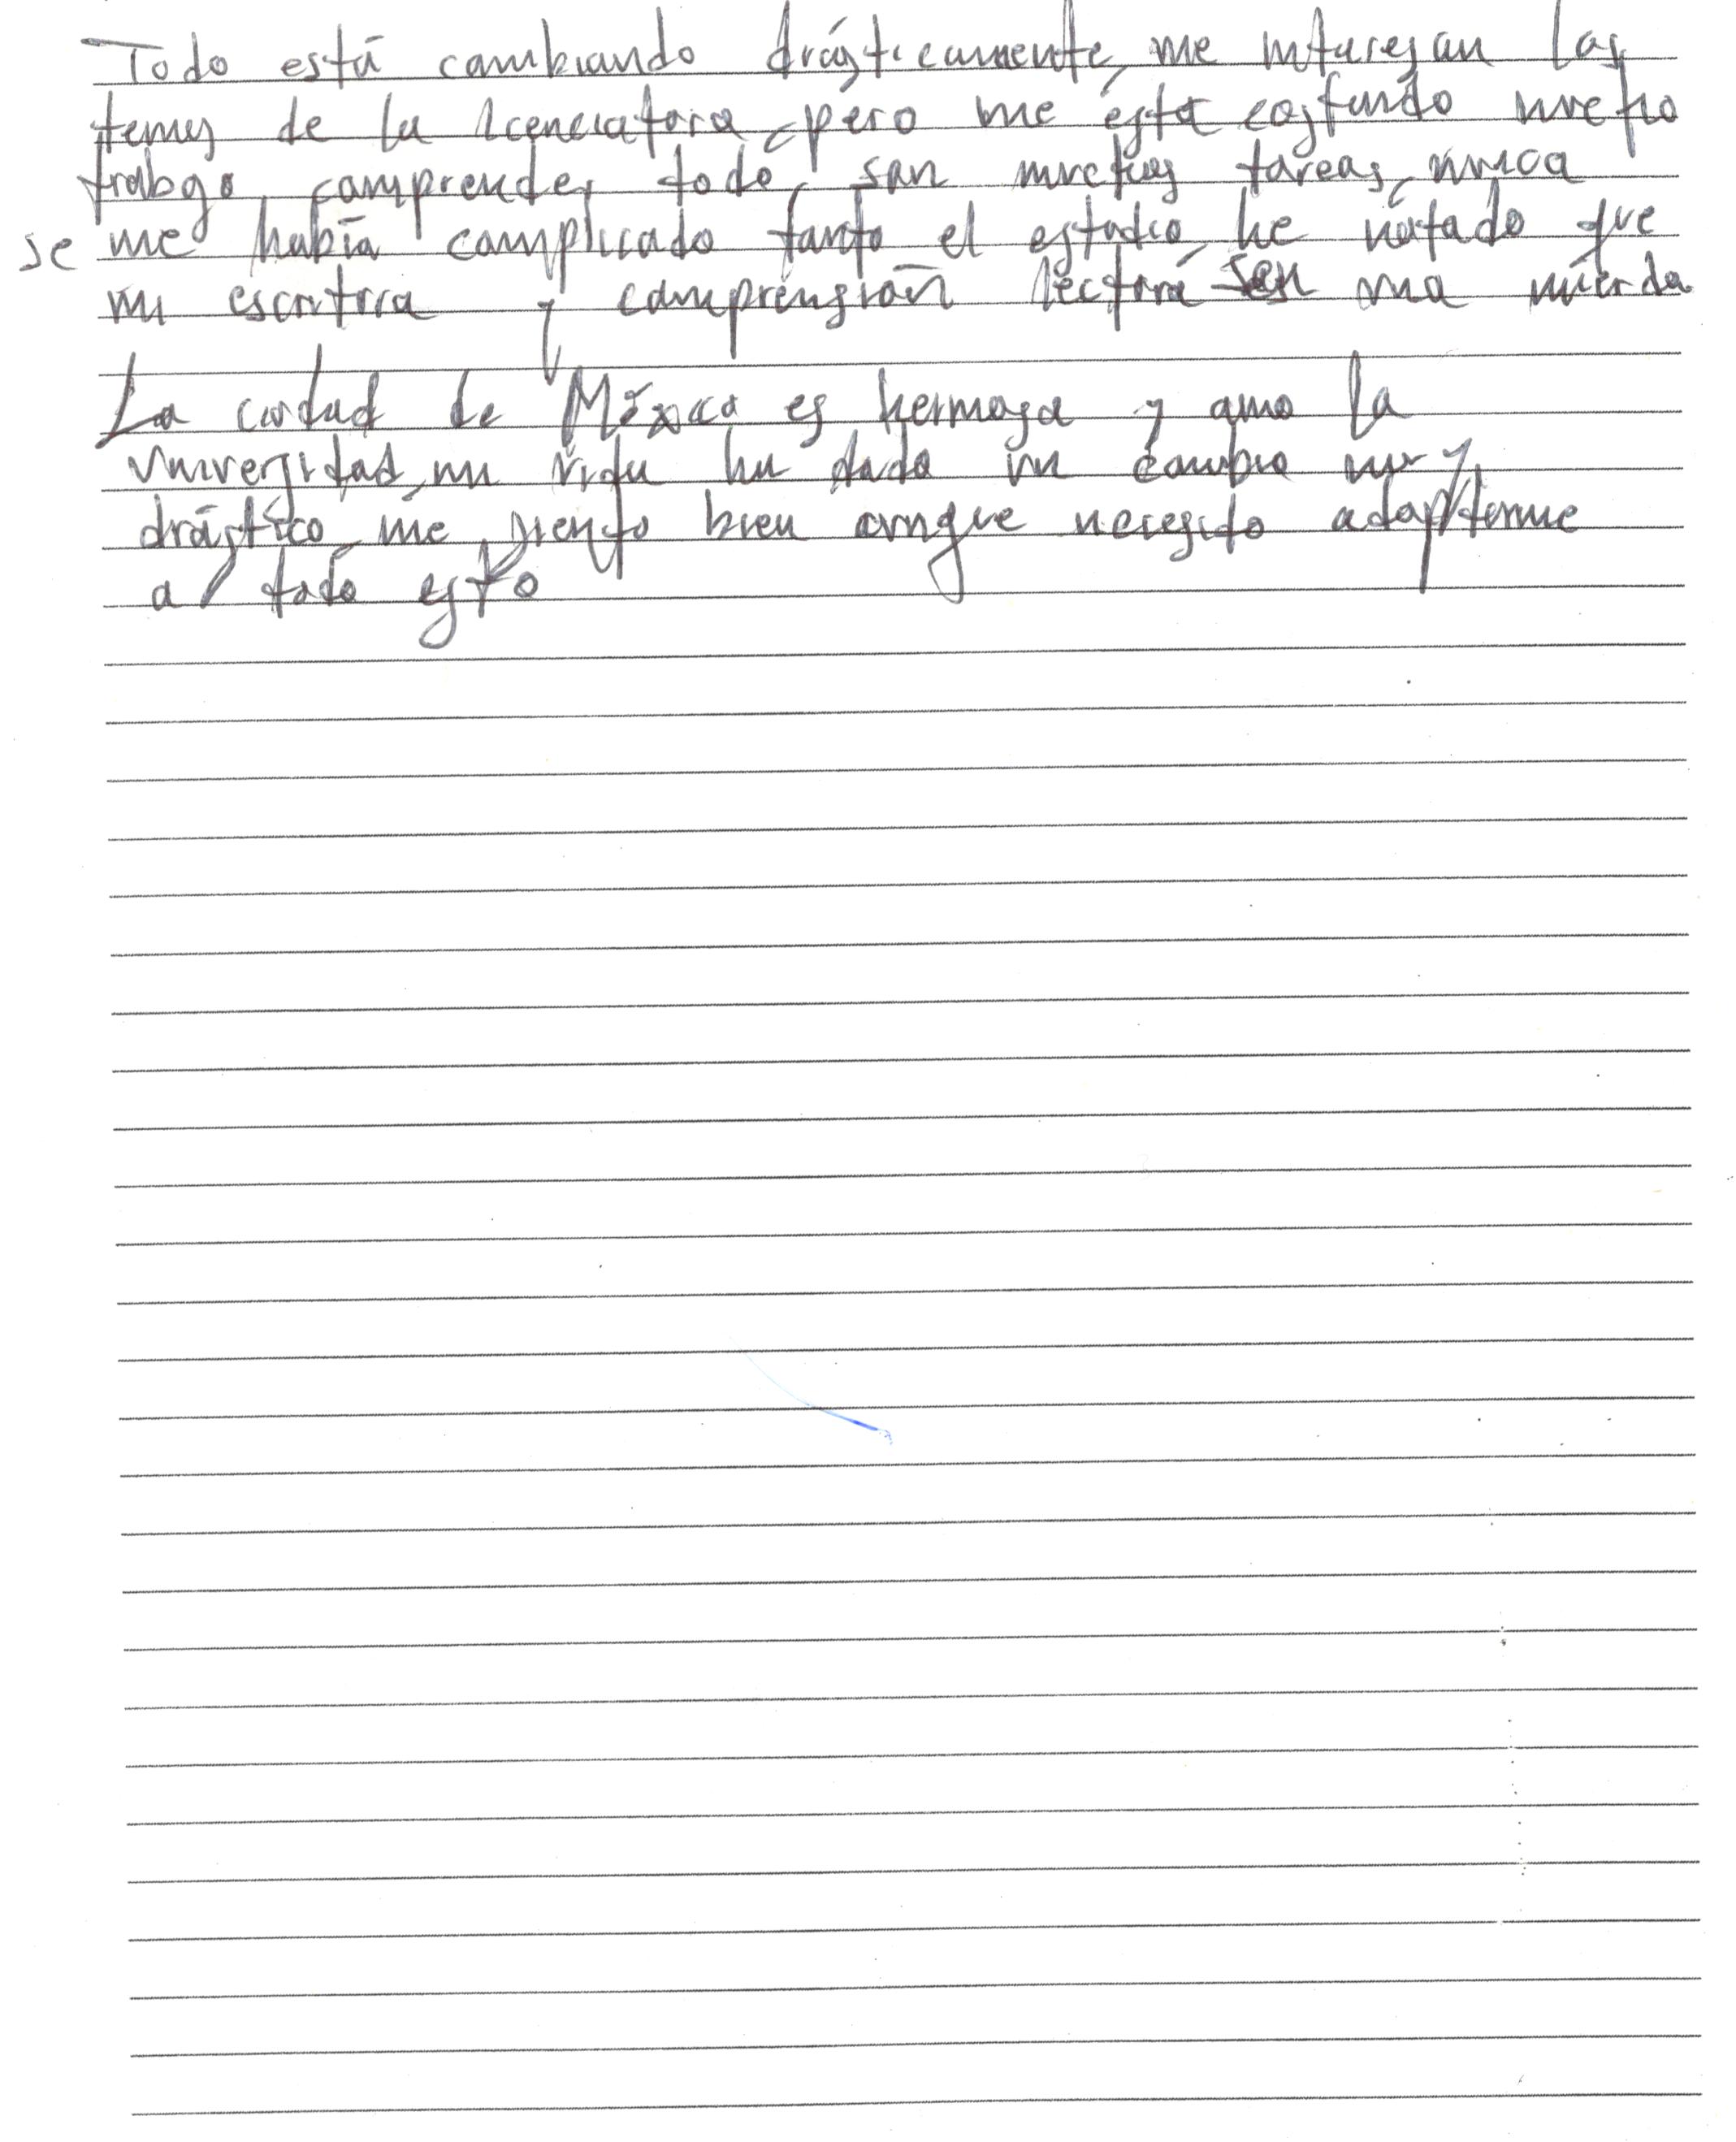 Todo está cambiando drásticamente, me interesan los
temas de la licenciatura, pero me está costando mucho
trabajo comprender todo, son muchas tareas, nunca
se me había complicado tanto el estudio, he notado que
mi escritura y comprensión lectora son una mierda
La ciudad de México es hermosa y amo la
universidad, mi vida ha dado un cambio muy
drástico, me siento bien aunque necesito adaptarme
a todo esto